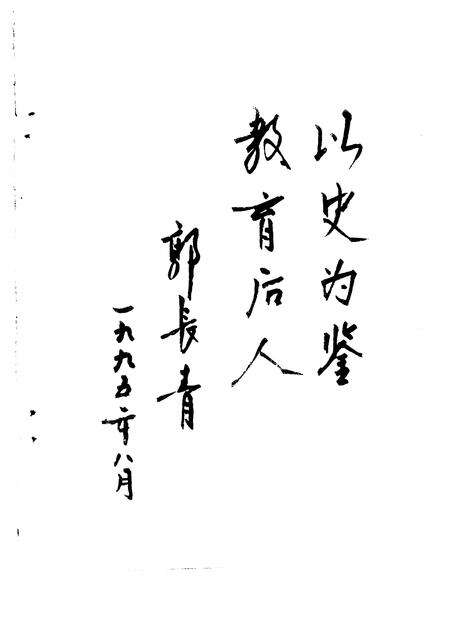 以史为鉴
教育后人
郭长青
一九九五年八月